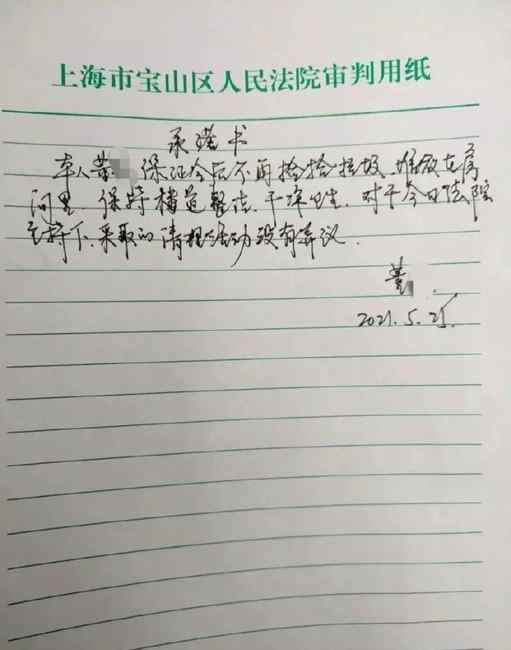 上海市宝山区人民法院审判用纸
承诺书
本人董 保证今后不再捡拾垃圾、堆放在房
间里、保持楼道整洁、干净卫生、对于今日法院
主持下、采取的清理活动没有异议.
董
2021.5.25.